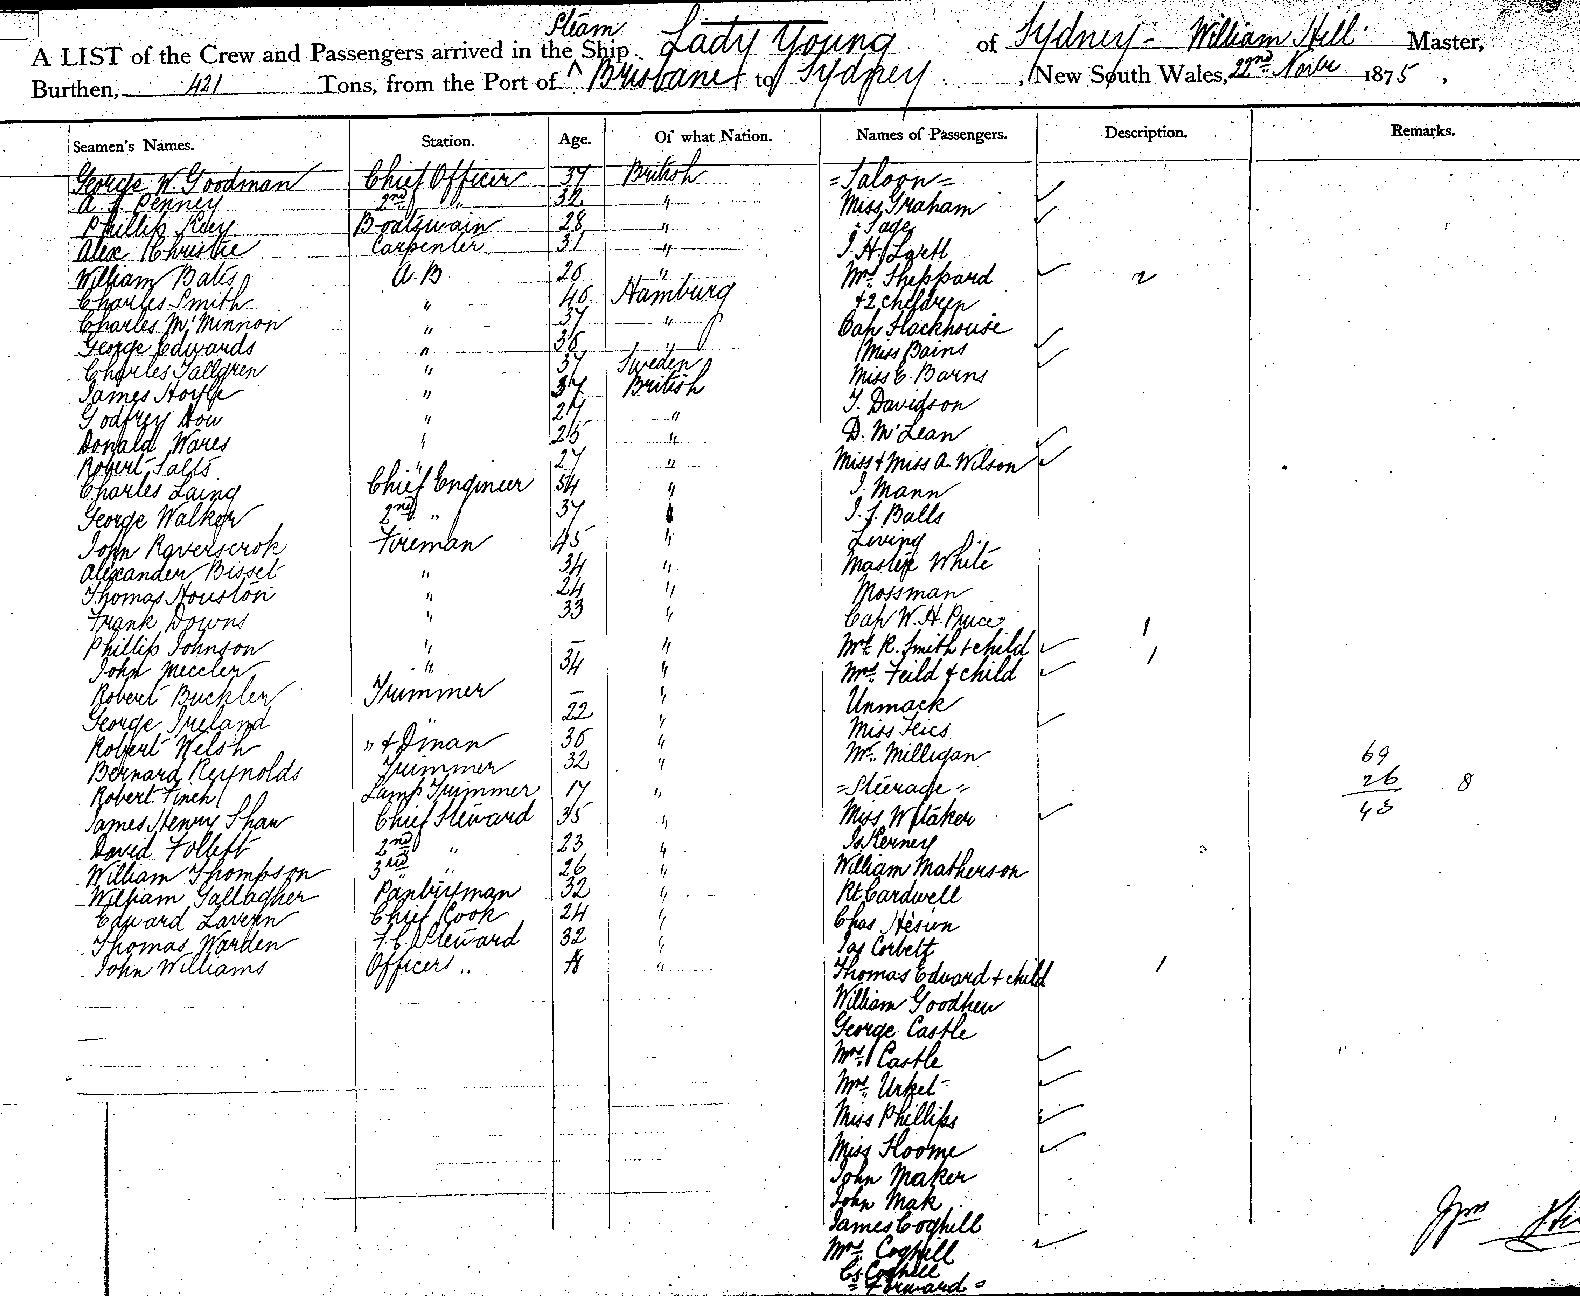 A LIST of the Crew and Passengers arrived in the Steam Ship Lady Young of Sydney - William Hill Master,
Burthen, 421 Tons, from the Port of Brisbane to Sydney, New South Wales, 22nd Novr 1875,
Seamen's Names. Station. Age. Of what Nation. Names of Passengers. Description. Remarks.
George W. Goodman Chief Officer 37 British = Saloon =
A. J. Penney 2nd " 32 " Miss Graham
Phillip Boatswain 28 " " Page
Alex Christie Carpenter 31 "
William Bates A. B. 26 " Mrs Sheppard 2
Charles Smith " 40 Hamburg + 2 children
Charles McMinnon " 37 " Cap Stackhouse
George Edwards " 36 Miss Bains
Charles Tallgren " 37 Sweden Miss E. Barns
James Hoyle " 37 British T. Davidson
Godfrey Dow " 27 " D. McLean
Donald Wares " 25 " Miss + Miss A. Wilson
Robert Salts " 27 " J. Mann
Charles Laing Chief Engineer 54 " J. J. Balls
George Walker 2nd " 37 " Living
John Raverscrok Fireman 45 " Master White
Alexander Bisset " 34 " Mossman
Thomas Houston " 24 " Cap W. H. Pruce
Frank Downs " 33 " Mrs R. Smith + child 1
Phillip Johnson " — " Mrs Feild + child 1
John Meccler " 34 " Unmack
Robert Buckler Trimmer — " Miss
George Ireland " 22 " Mr. Milligan
Robert Welsh " + Dman 36 " = Steerage =
Bernard Reynolds Trimmer 32 " Miss Witaker
Robert Finch Lamp Trimmer 17 " Js Kerney
James Henry Shaw Chief Steward 35 " William Matherson
David Follett 2nd " 23 " Rt Cardwell
William Thompson 3rd " 26 " Chas
William Gallagher Pantryman 32 " Jas Corbett
Edward Lavern Chief Cook 24 " Thomas Edward + child 1
Thomas Warden F. C. Steward 32 " William Goodhew
John Williams Officers " " George Castle
Mrs Castle
Mrs Urket
Miss Phillips
Miss Hoome
John Maker
John Mak
James Coghill
Mrs Coghill
Cs Coghill
= Forward =
69
26 8
43
Wm